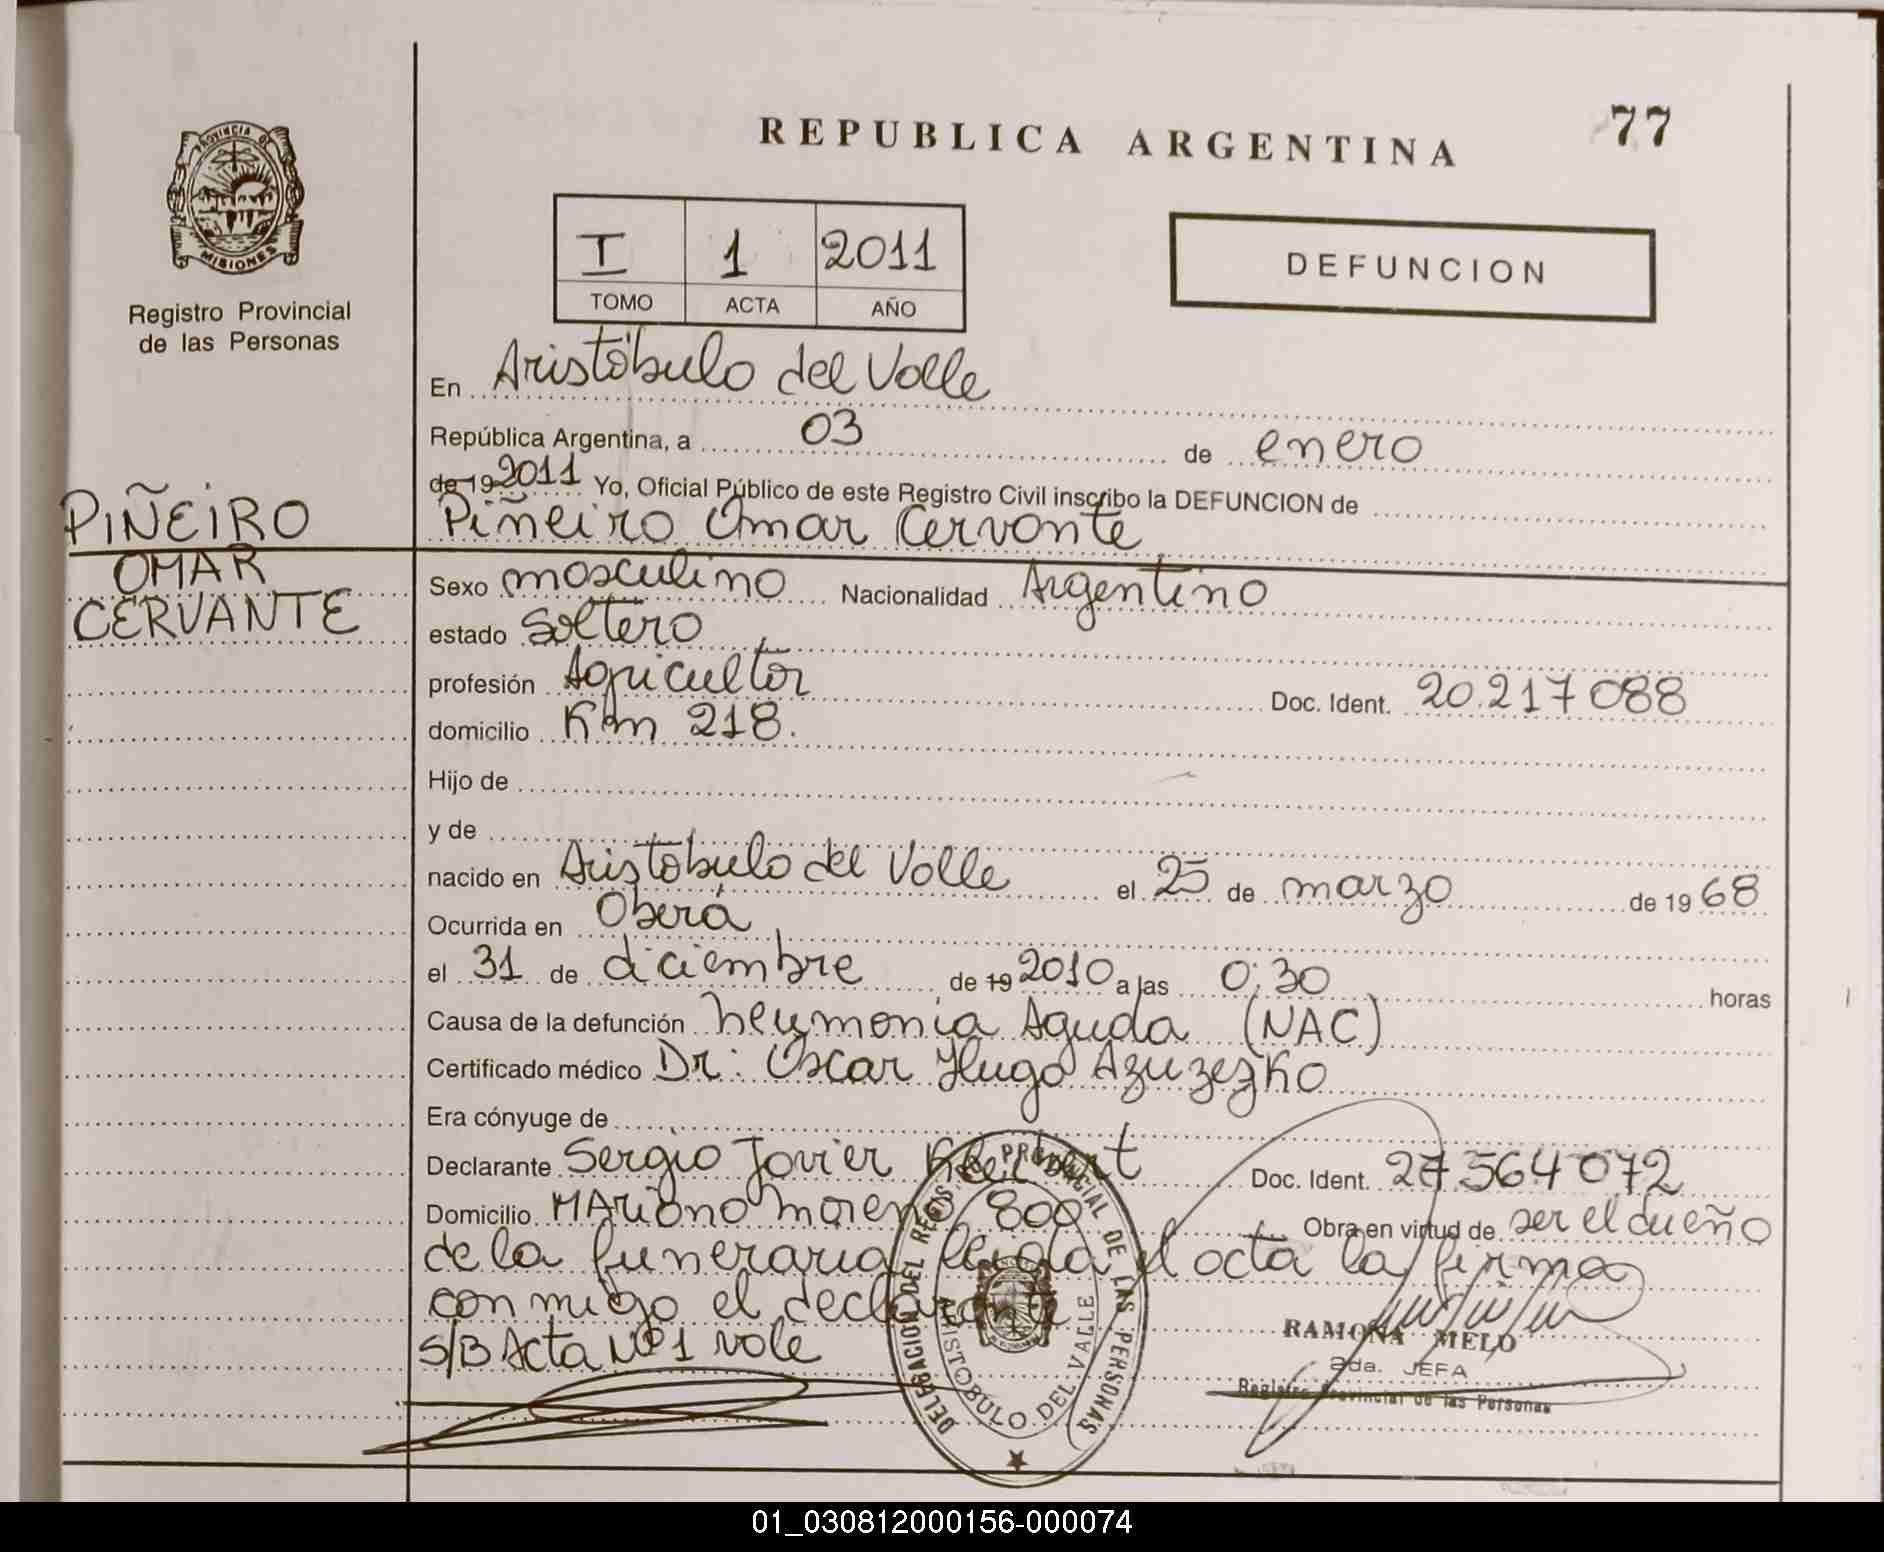 REPUBLICA ARGENTINA
77
PROVINCIA DE
MISIONES
Registro Provincial
de las Personas
I 1 2011
TOMO ACTA AÑO
DEFUNCION
En Aristóbulo del Valle
República Argentina, a 03 de enero
de 19 2011 Yo, Oficial Público de este Registro Civil inscribo la DEFUNCION de
Piñeiro Omar Cervante
PIÑEIRO
OMAR
CERVANTE
Sexo masculino Nacionalidad Argentino
estado Soltero
profesión Agricultor Doc. Ident. 20.217088
domicilio Km 218.
Hijo de
y de
nacido en Aristobulo del Valle el 25 de marzo de 19 68
Ocurrida en Oberá
el 31 de diciembre de 19 2010 a las 0;30 horas
Causa de la defunción neumonia Aguda (NAC)
Certificado médico Dr: Oscar Hugo Azuzezko
Era cónyuge de
Declarante Sergio Javier Doc. Ident. 27564072
Domicilio MAriano moreno 800 Obra en virtud de ser el dueño
de la funeraria leida el acta la firma
conmigo el declarante
S/B Acta Nº1 vale
DELEGACION DEL REGIS. PROVINCIAL DE LAS PERSONAS
ARISTOBULO DEL VALLE
RAMONA MELO
2da. JEFA
Registro Provincial de las Personas
01_030812000156-000074